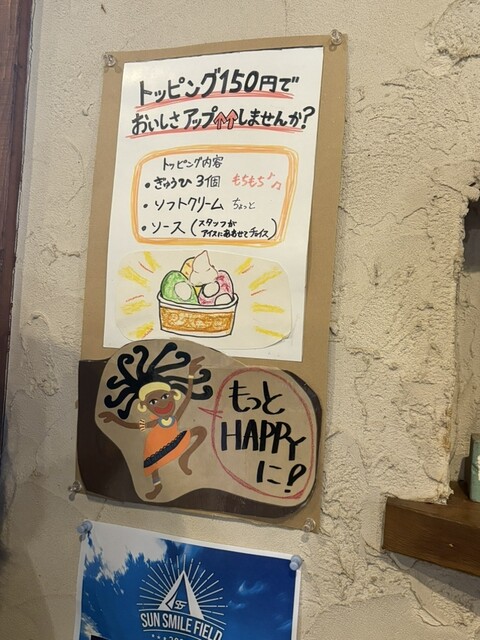 トッピング150円で
おいしさアップ↑↑しませんか?
トッピング内容
・ぎゅうひ 3個 もちもち♪♫
・ソフトクリーム ちょっと
・ソース(スタッフが
アイスにあわせてチョイス)
もっと
HAPPY
に?
SUN SMILE FIELD